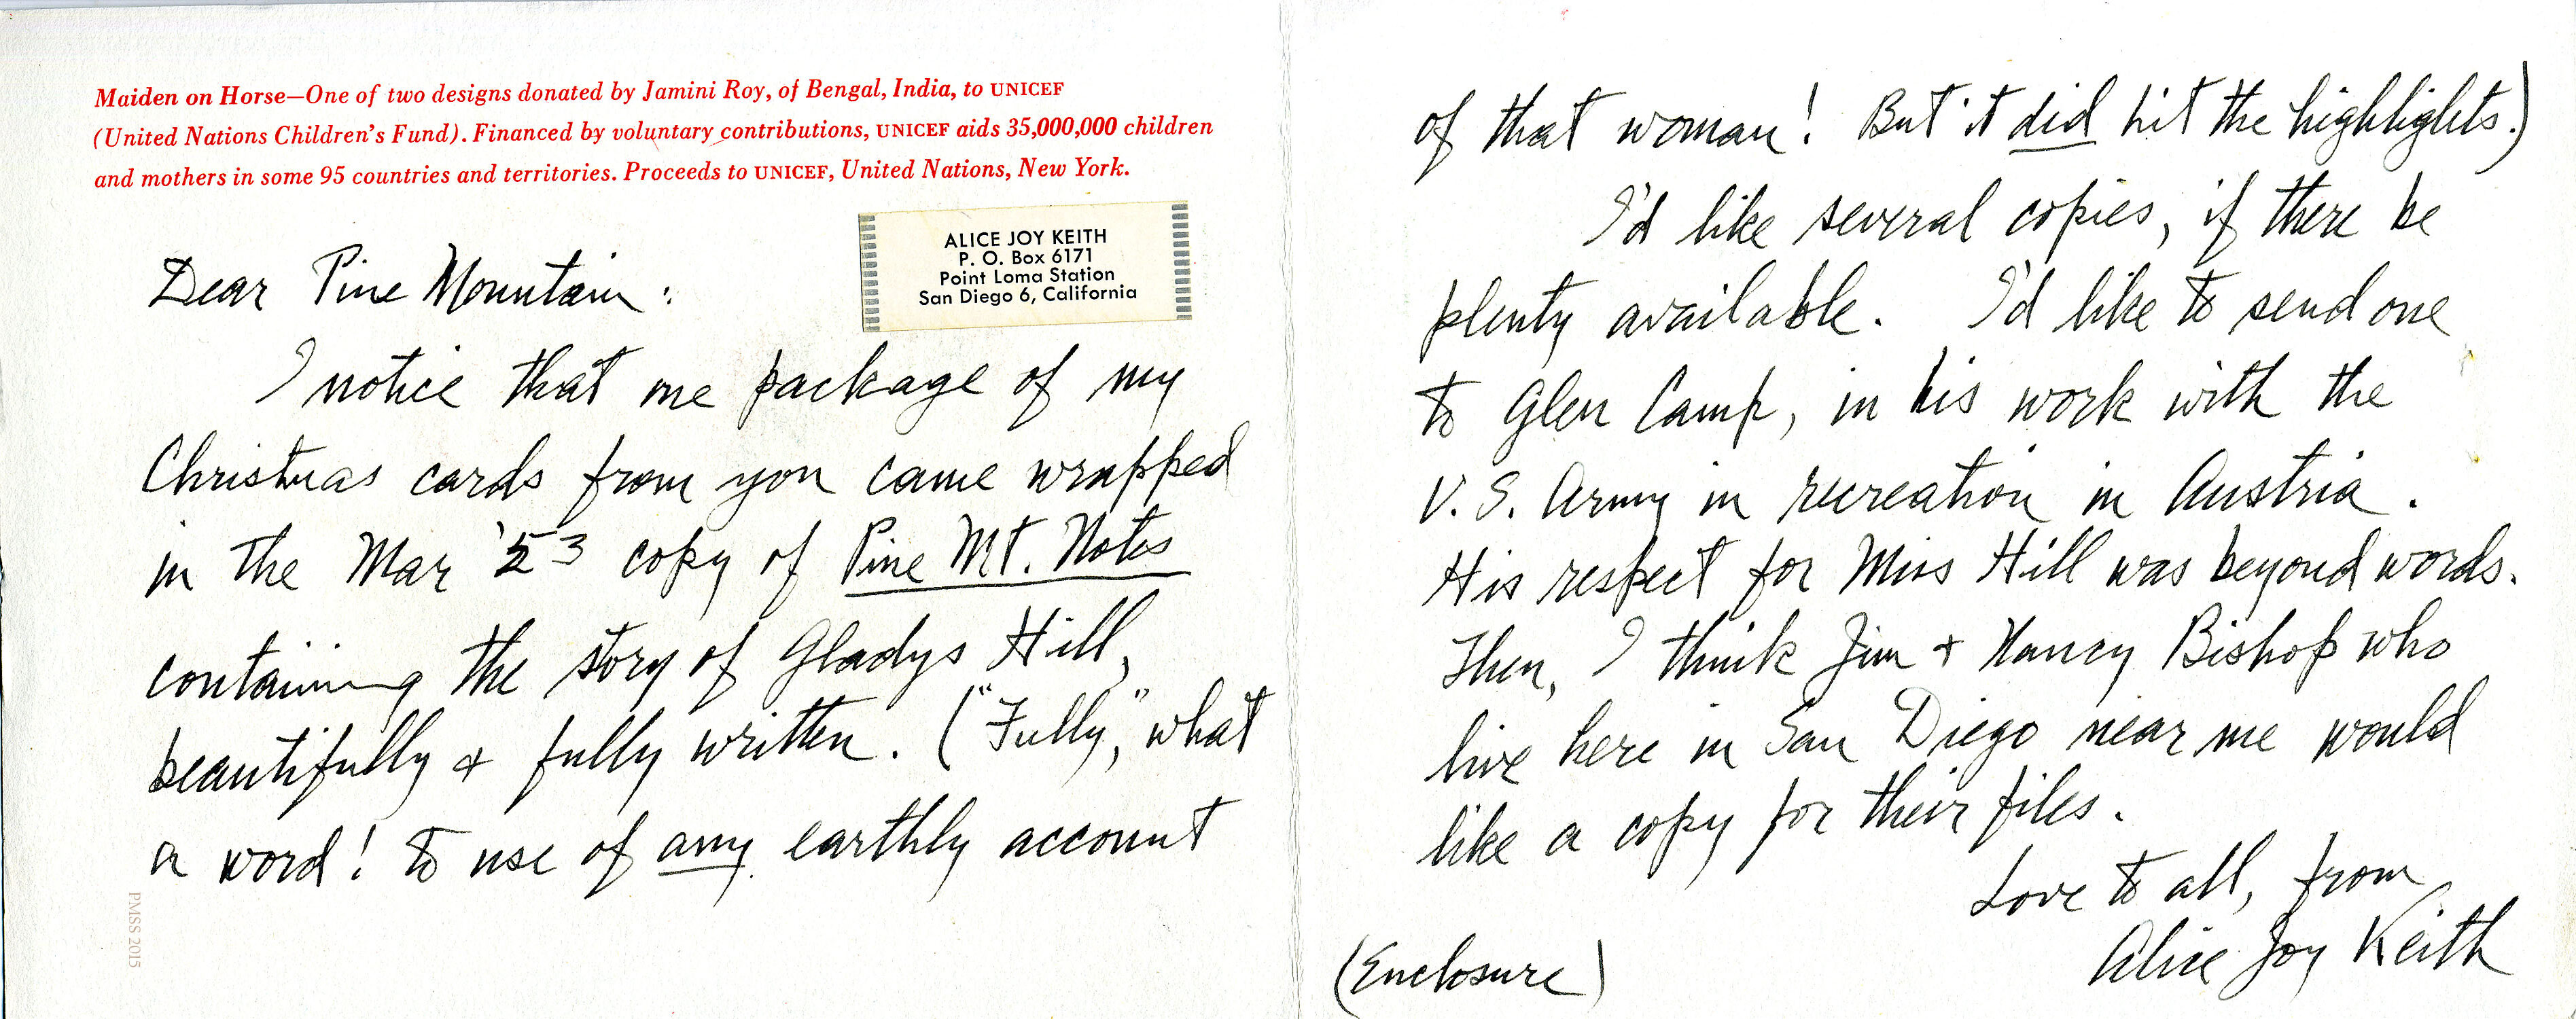 Maiden on Horse—One of two designs donated by Jamini Roy, of Bengal, India, to UNICEF
(United Nations Children's Fund). Financed by voluntary contributions, UNICEF aids 35,000,000 children
and mothers in some 95 countries and territories. Proceeds to UNICEF, United Nations, New York.
ALICE JOY KEITH
P. O. Box 6171
Point Loma Station
San Diego 6, California
Dear Pine Mountain:
I notice that one package of my
Christmas cards from you came wrapped
in the Mar '53 copy of Pine Mt. Notes
containing the story of Gladys Hill,
beautifully & fully written. ("Fully," what
a word! to use of any earthly account
PMSS 2015
of that woman! But it did hit the highlights.)
I'd like several copies, if there be
plenty available. I'd like to send one
to Glen Camp, in his work with the
U. S. Army in recreation in Austria.
His respect for Miss Hill was beyond words.
Then, I think Jim & Nancy Bishop who
live here in San Diego near me would
like a copy for their files.
Love to all, from
Alice Joy Keith
(Enclosure)